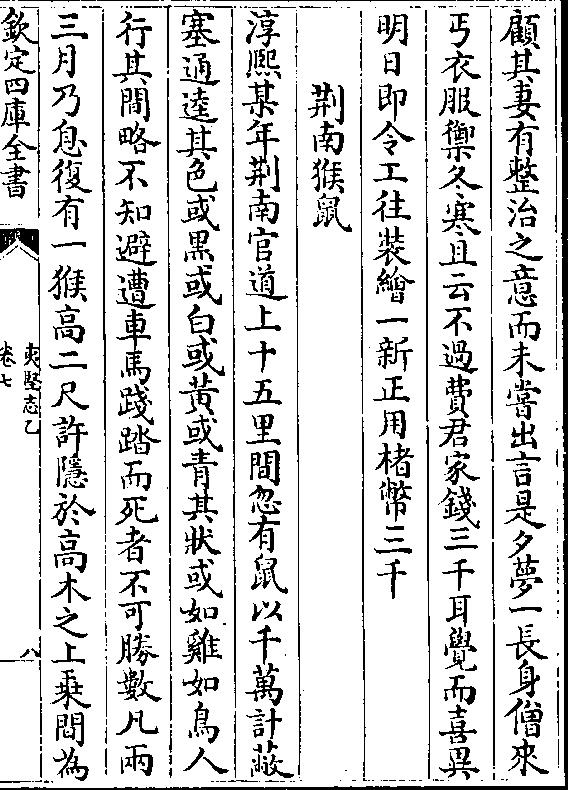 顧其妻有整治之意而未嘗出言是夕夢一長身僧來
丐衣服禦冬寒且云不過費君家錢三千耳覺而喜異
明日即令工往裝繪一新正用楮幣三千
荆南猴鼠
淳熙某年荆南官道上十五里間忽有鼠以千萬計蔽
塞通逵其色或黒或白或黄或青其狀或如雞如鳥人
行其間略不知避遭車馬踐踏而死者不可勝數凡兩
三月乃息復有一猴高二尺許隱於高木之上乗間為
欽定四庫全書
夷堅志乙
卷七
八